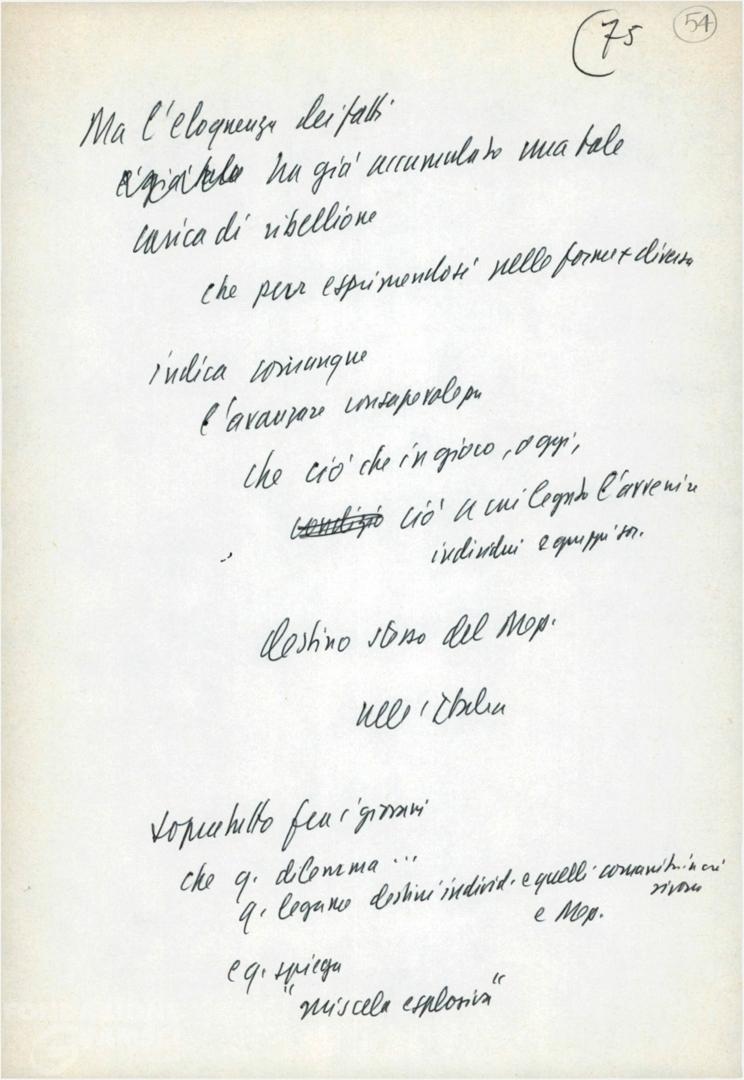 (75 54
Ma l'eloquenza dei fatti
ha già accumulato una tale
carica di ribellione
che pur esprimendosi nelle forme + diverse
indica comunque
l'avanzare consapevolezza
che ciò che in gioco, oggi,
ciò a cui legato l'avvenire
individui e gruppi soc.
destino stesso del Mop.
nell'Italia
sopratutto fra i giovani
che q. dilemma ...
q. legame destini individ. e quelli comunità in cui
vivono
e Mop.
e q. spiega
"miscela esplosiva"